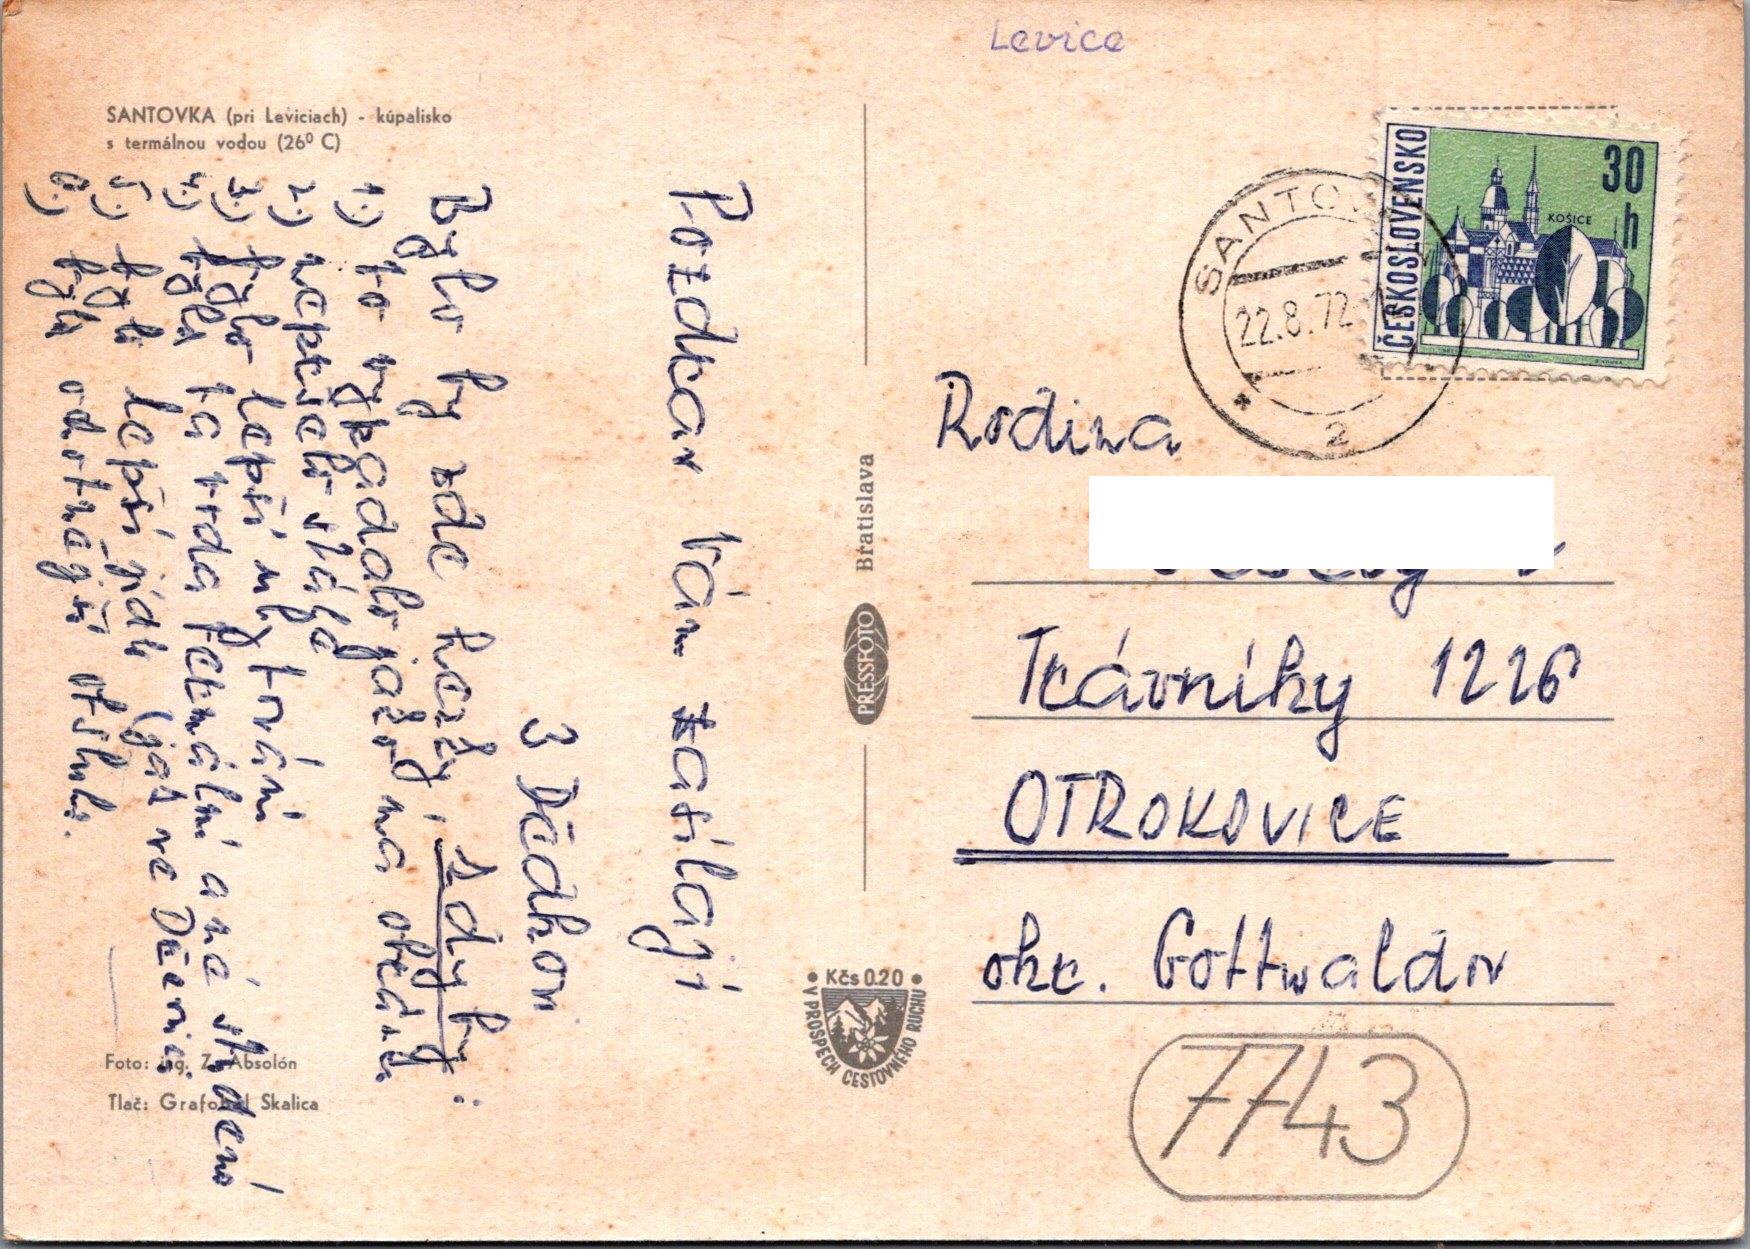 Levice
SANTOVKA (pri Leviciach) - kúpalisko
s termálnou vodou (26⁰ C)
Pozdrav Vám zasílají
3
Bylo by zde hezky, kdyby:
1.) to vypadalo jako na
2.) nepršelo stále
3.) bylo lepší ubytování
4.) byla ta voda termální a ne studená
5.) bylo lepší jídlo (jak ve
6.) byla ochotnější obsluha.
Foto: ing. Z. Absolón
Tlač: Grafobal Skalica
PRESSFOTO Bratislava
Kčs 0.20
V PROSPECH CESTOVNÉHO RUCHU
ČESKOSLOVENSKO
30 h
KOŠICE
22.8.72
2
Rodina
Trávníky 1226
OTROKOVICE
okr. Gottwaldov
7743